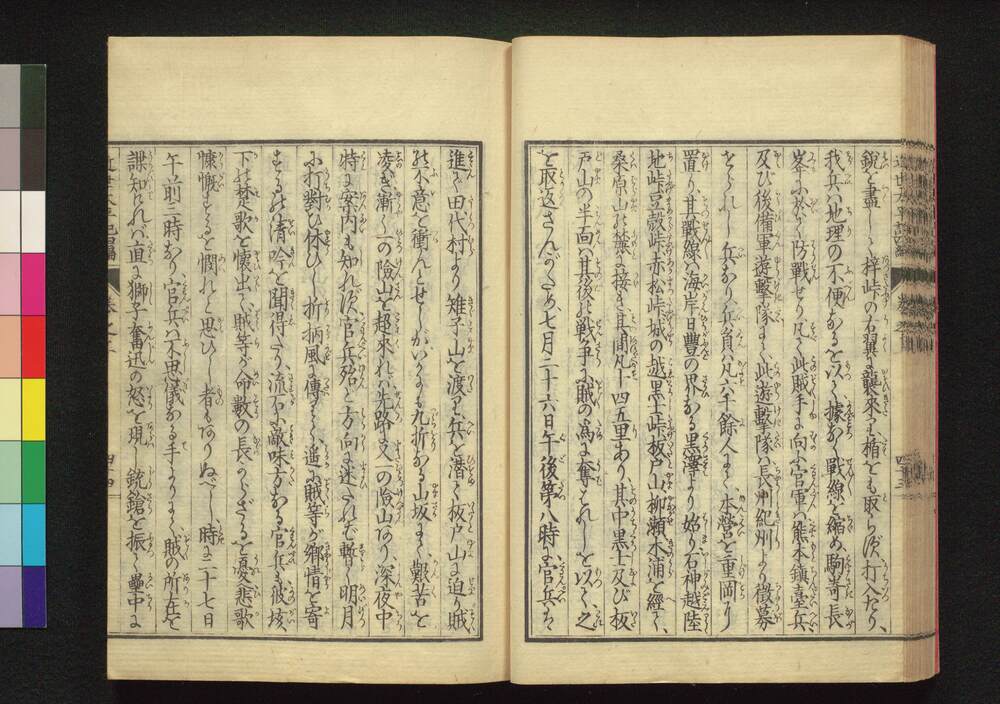 鋭を盡して梓峠の右翼に襲来し楯をも取らず打入たり、
我兵ハ地理の不便なるを以て據なく戰線を縮め駒嵜長
峯に於て防戰せり凡そ此賊手に向ふ官軍ハ熊本鎮臺兵
及び後備軍遊撃隊にて此遊撃隊ハ長州紀州より徴募
せられし兵なり兵員ハ凡六千餘人にて本營を重岡に
置り、其戰線ハ海岸日豊の界なる黒澤より始り石神越陸
地峠豆殻峠赤松峠城の越黒土峠板戸山柳瀬水浦を經て、
桑原山の麓に接き其間凡十四五里あり其中黒土及び板
戸山の半面ハ其後の戰爭に賊の為に奪ハれしを以て之
を取返さんがため、七月二十六日午後第八時に官兵ハ
進て田代村より雉子山を渡り兵を潜て板戸山に迫り賊
の不意を衝んとせしがいかにも九折なる山坂にて艱苦を
凌ぎ漸く一の險山を超來れハ先路又一の險山あり、深夜中
特に案内も知れず官兵殆と方向に迷たれば暫く明月
に打對ひ休ひし折柄風が傳もて、遥に賊等が郷情を寄
する の情吟を聞得たり流石に敵味方なる官兵も彼垓
下の楚歌を懐出て賊等が命數の長からざるを憂悲歌
慷慨するを憫れと思ひし者もありぬべし時に二十七日
午前三時なり、官兵ハ不思儀なる手にて、賊の所在を
諜知けれバ直に獅子奮迅の怒を現し銃鎗を振て壘中に